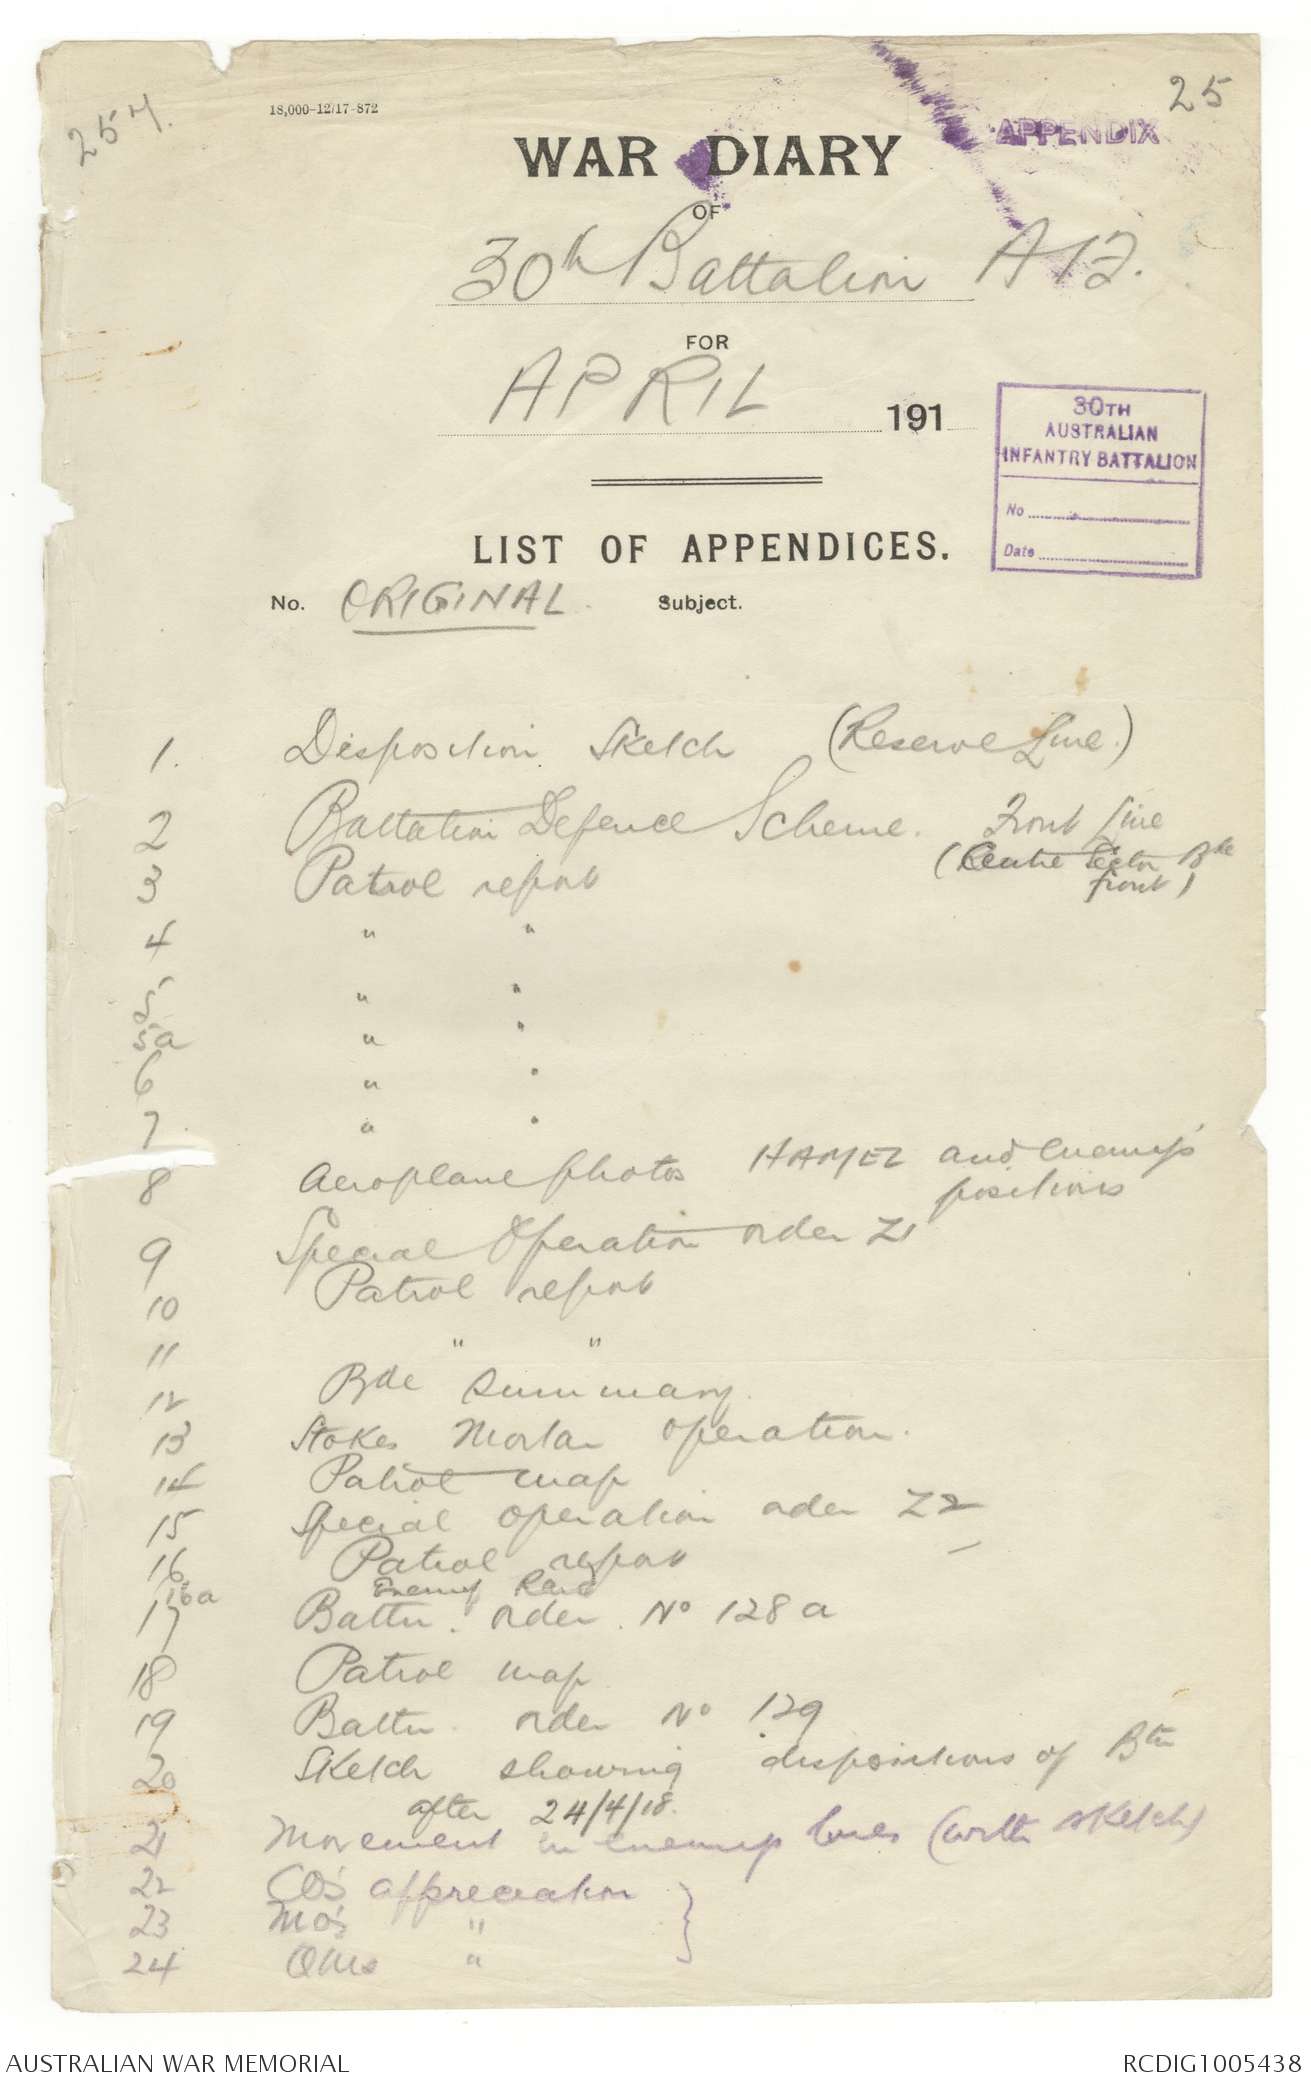 257.
18,000-12/17-872
25
APPENDIX
WAR DIARY
OF
30th Battalion A12.
FOR
APRIL 191
30TH
AUSTRALIAN
INFANTRY BATTALION
No
Date
LIST OF APPENDICES.
No. ORIGINAL. Subject.
1. Disposition Sketch (Reserve Line.)
2 Battalion Defence Scheme. Front Line
(Centre Sector Bde
front)
3 Patrol report
4 " "
5 " "
5a " "
6 " "
7. " "
8 Aeroplane photos HAMEL and enemy's
positions
9 Special Operation order Z1
10 Patrol report
11 " "
12 Bde Summary.
13 Stokes Mortar operation.
14 Patrol map
15 Special operation order Z2
16. Patrol report
16a Enemy Raid
17 Battn. order. No 128a
18 Patrol map
19 Battn. order No 129
20 Sketch showing dispositions of Btn
after 24/4/18.
21 Movement in enemy lines (with sketch)
22 CO's appreciation }
23 MO's "
24 QMs "
AUSTRALIAN WAR MEMORIAL
RCDIG1005438